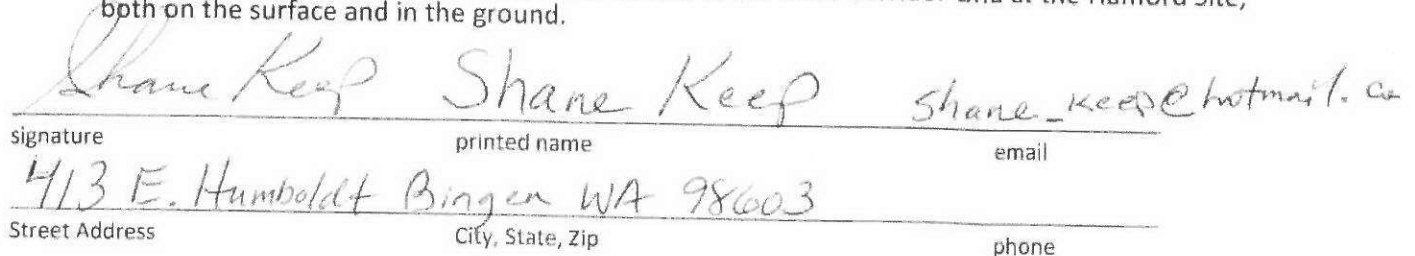 both on the surface and in the ground.
Shane Keep Shane Keep shane_keep@hotmail.co
signature printed name email
413 E. Humboldt Bingen WA 98603
Street Address City, State, Zip phone